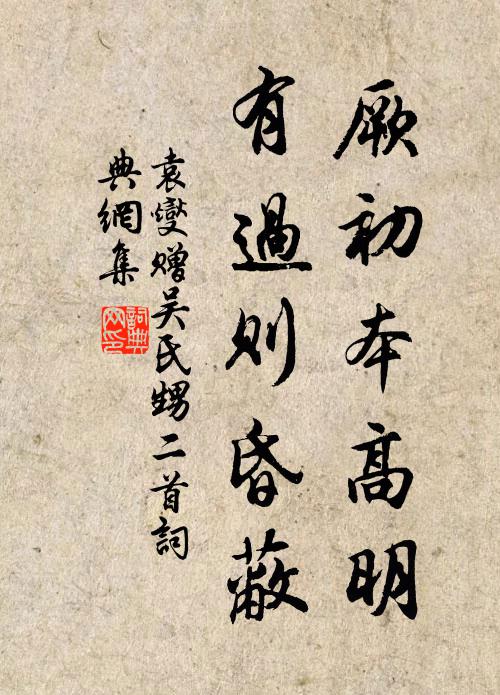 厥初本高明
有過則昏蔽
袁燮贈吴氏甥二首詞
典網集
詞典
网印